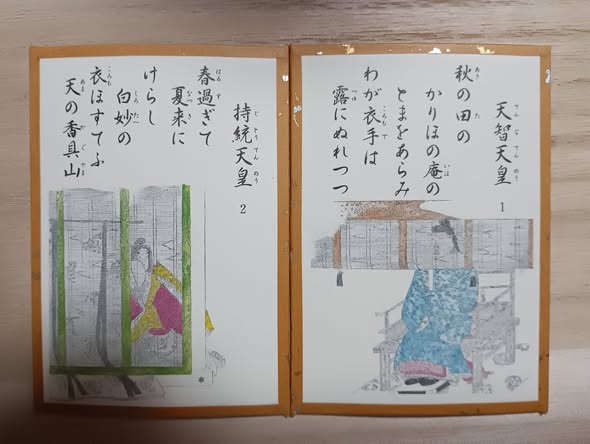 天智天皇 1
秋の田の
かりほの庵の
とまをあらみ
わが衣手は
露にぬれつつ
持統天皇 2
春過ぎて
夏来に
けらし
白妙の
衣ほすてふ
天の香具山